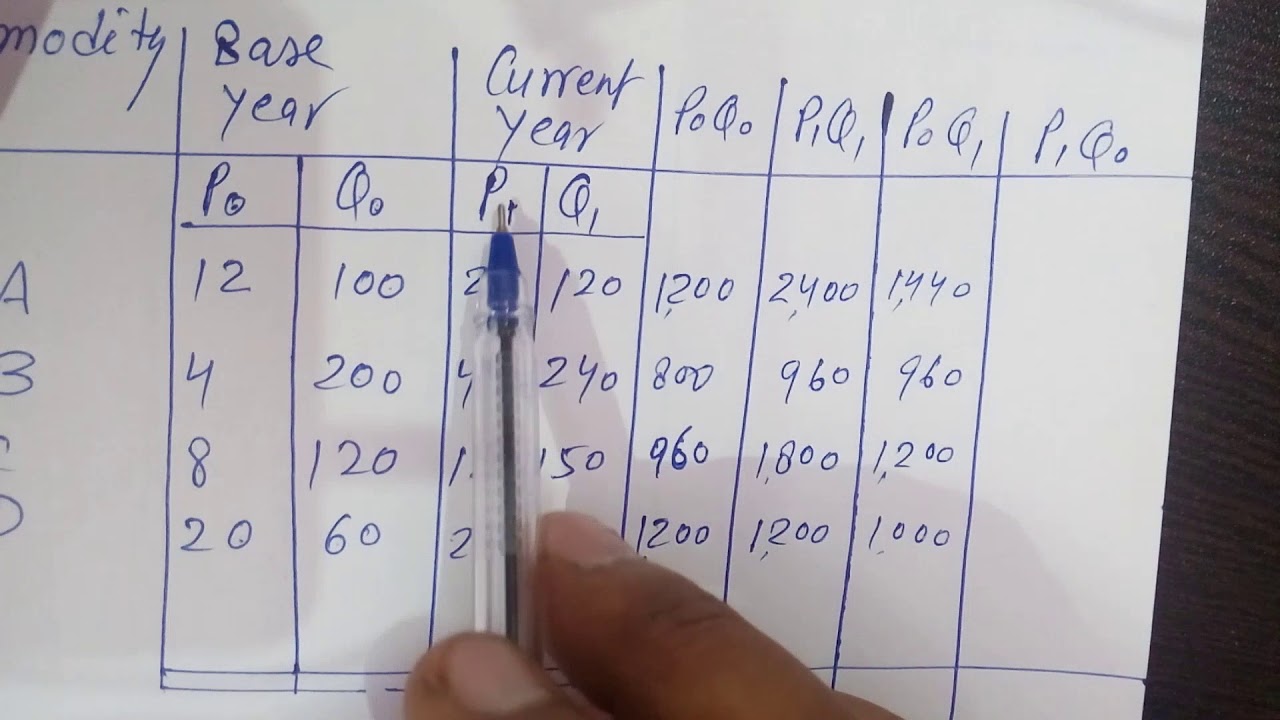 modity Base Year Current Year P₀Q₀ P₁Q₁ P₀Q₁ P₁Q₀
P₀ Q₀ P₁ Q₁
A 12 100 120 1,200 2,400 1,440
B 4 200 4 240 800 960 960
8 120 150 960 1,800 1,200
D 20 60 1,200 1,200 1,000